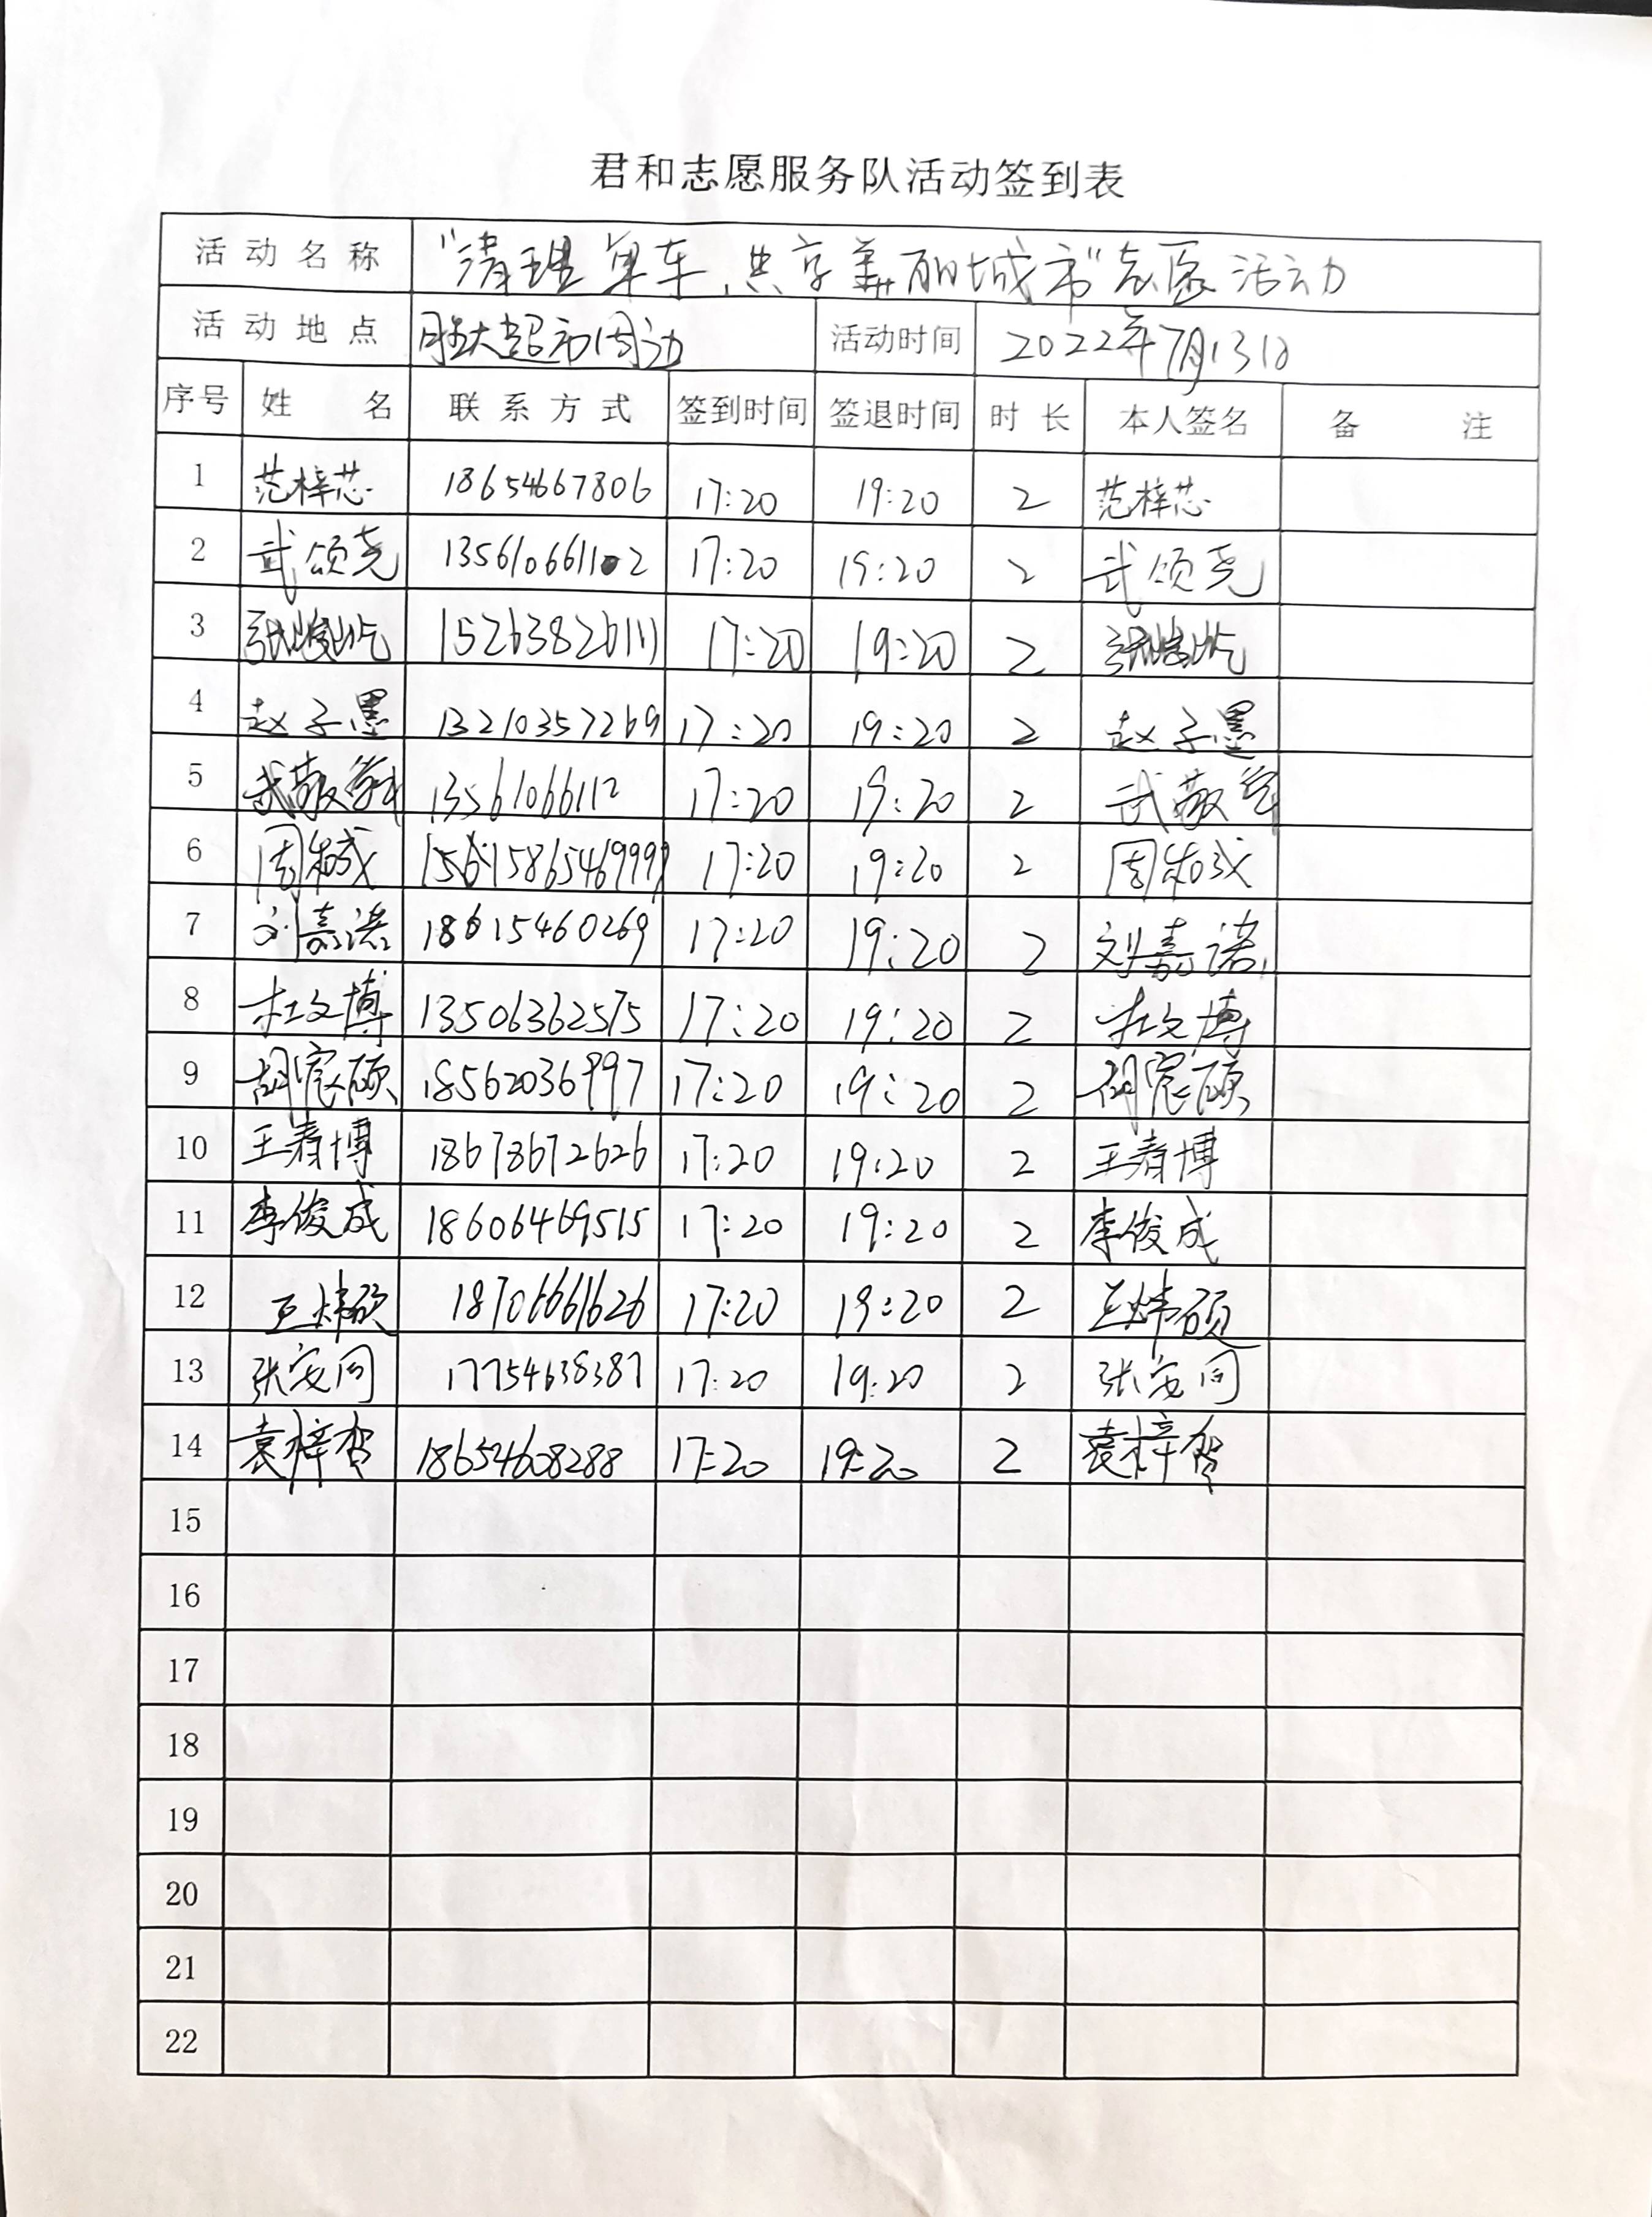 君和志愿服务队活动签到表
活动名称 "清理单车,共享美丽城市"志愿活动
活动地点 胜大超市周边 活动时间 2022年7月13日
序号 姓名 联系方式 签到时间 签退时间 时长 本人签名 备注
1 范梓芯 18654667806 17:20 19:20 2 范梓芯
2 武颂尧 13561066102 17:20 19:20 2 武颂尧
3 张峻屹 15263826111 17:20 19:20 2 张峻屹
4 赵子墨 13210357269 17:20 19:20 2 赵子墨
5 武敬 13561066112 17:20 19:20 2 武敬
6 周 15865469999 17:20 19:20 2 周
7 刘嘉诺 18615460269 17:20 19:20 2 刘嘉诺
8 杜文博 13506362575 17:20 19:20 2 杜文博
9 胡宸硕 18562036997 17:20 19:20 2 胡宸硕
10 王春博 18678672626 17:20 19:20 2 王春博
11 李俊成 18606469515 17:20 19:20 2 李俊成
12 王炜硕 18706661626 17:20 19:20 2 王炜硕
13 张安同 17754638387 17:20 19:20 2 张安同
14 袁梓贺 18654608288 17:20 19:20 2 袁梓贺
15
16
17
18
19
20
21
22